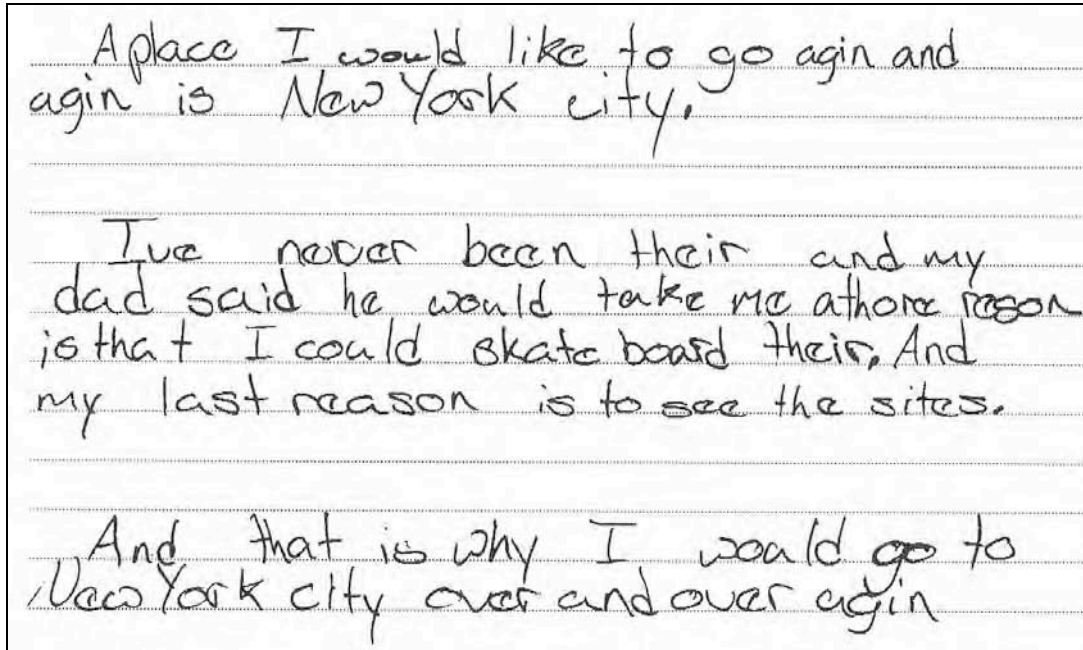 A place I would like to go agin and
agin is New York city.
Ive never been their and my
dad said he would take me athore reson
is that I could skate board their. And
my last reason is to see the sites.
And that is why I would go to
New York city over and over agin